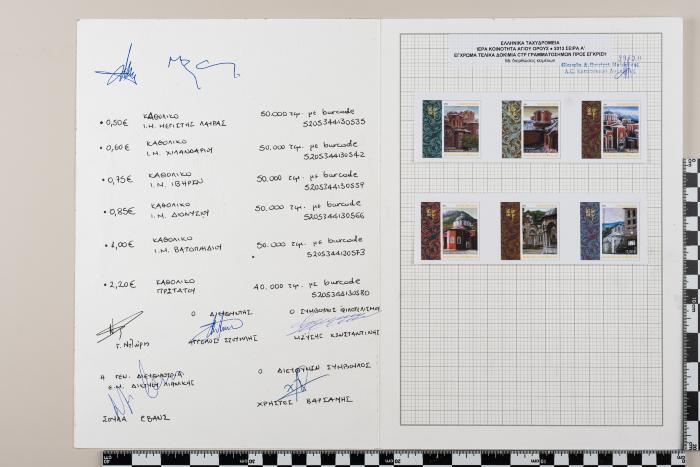 • 0,50€ ΚΑΘΟΛΙΚΟ 50.000 τεμ. με barcode
Ι.Μ. ΜΕΓΙΣΤΗΣ ΛΑΥΡΑΣ 5205344130535
• 0,60€ ΚΑΘΟΛΙΚΟ 50.000 τεμ. με barcode
Ι.Μ. ΧΙΛΑΝΔΑΡΙΟΥ 5205344130542
• 0,75€ ΚΑΘΟΛΙΚΟ 50.000 τεμ. με barcode
Ι.Μ. ΙΒΗΡΩΝ 5205344130559
• 0,85€ ΚΑΘΟΛΙΚΟ 50.000 τεμ. με barcode
Ι.Μ. ΔΙΟΝΥΣΙΟΥ 5205344130566
• 1,00€ ΚΑΘΟΛΙΚΟ 50.000 τεμ. με barcode
Ι.Μ. ΒΑΤΟΠΑΙΔΙΟΥ 5205344130573
• 2,20€ ΚΑΘΟΛΙΚΟ 40.000 τεμ. με barcode
ΠΡΩΤΑΤΟΥ 5205344130580
Ο ΔΙΕΥΘΥΝΤΗΣ
Ο ΣΥΜΒΟΥΛΟΣ ΦΙΛΟΤΕΛΙΣΜΟΥ
ΑΓΓΕΛΟΣ
ΚΩΝΣΤΑΝΤΙΝΗΣ
Η ΓΕΝ. ΔΙΕΥΘΥΝΤΡΙΑ
Ε.Μ. ΔΙΚΤΥΟΥ ΛΙΑΝΙΚΗΣ
ΣΟΥΛΑ ΕΒΑΝΣ
Ο ΔΙΕΥΘΥΝΩΝ ΣΥΜΒΟΥΛΟΣ
ΧΡΗΣΤΟΣ ΒΑΡΣΑΜΗΣ
ΕΛΛΗΝΙΚΑ ΤΑΧΥΔΡΟΜΕΙΑ
ΙΕΡΑ ΚΟΙΝΟΤΗΤΑ ΑΓΙΟΥ ΟΡΟΥΣ • 2012 ΣΕΙΡΑ Α'
ΕΓΧΡΩΜΑ ΤΕΛΙΚΑ ΔΟΚΙΜΙΑ ΓΡΑΜΜΑΤΟΣΗΜΩΝ ΠΡΟΣ ΕΓΚΡΙΣΗ
Με διορθώσεις κειμένων